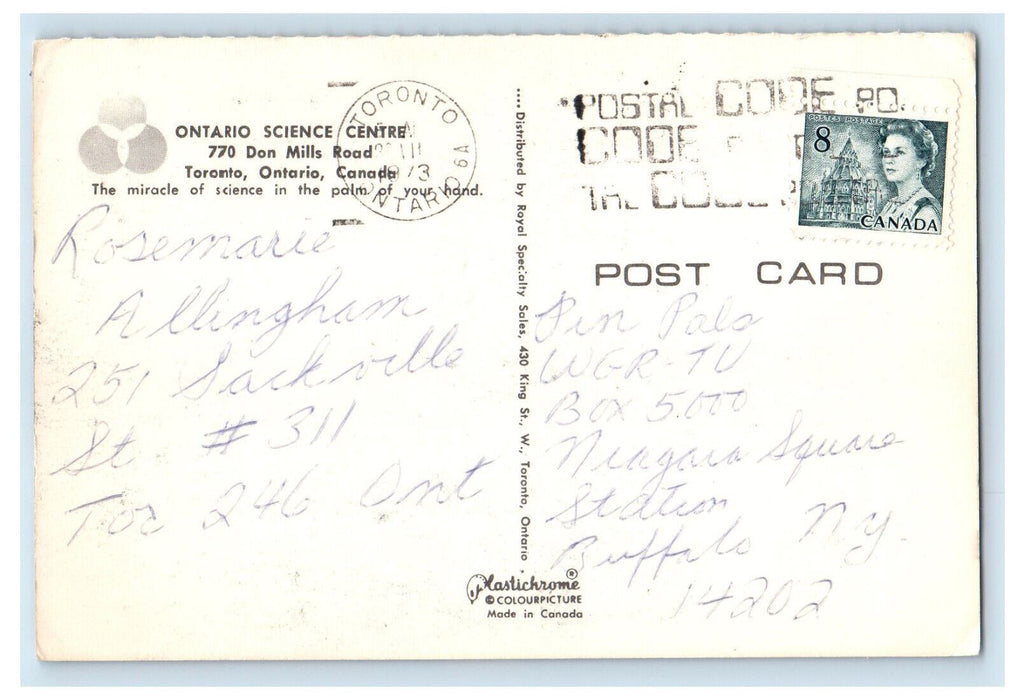 ONTARIO SCIENCE CENTRE
770 Don Mills Road
Toronto, Ontario, Canada
The miracle of science in the palm of your hand.
Rosemarie
Allingham
251 Sackville
St # 311
Tor 246 Ont
TORONTO
III
1973
6A
ONTARIO
.... Distributed by Royal Specialty Sales, 430 King St., W., Toronto, Ontario .
Plastichrome ®
© COLOURPICTURE
Made in Canada
POSTAL CODE PO.
CODE
CODE
POSTES POSTAGE
8
CANADA
POST CARD
Pen Pals
WGR-TV
Box 5000
Niagara Square
Station
Buffalo NY.
14202